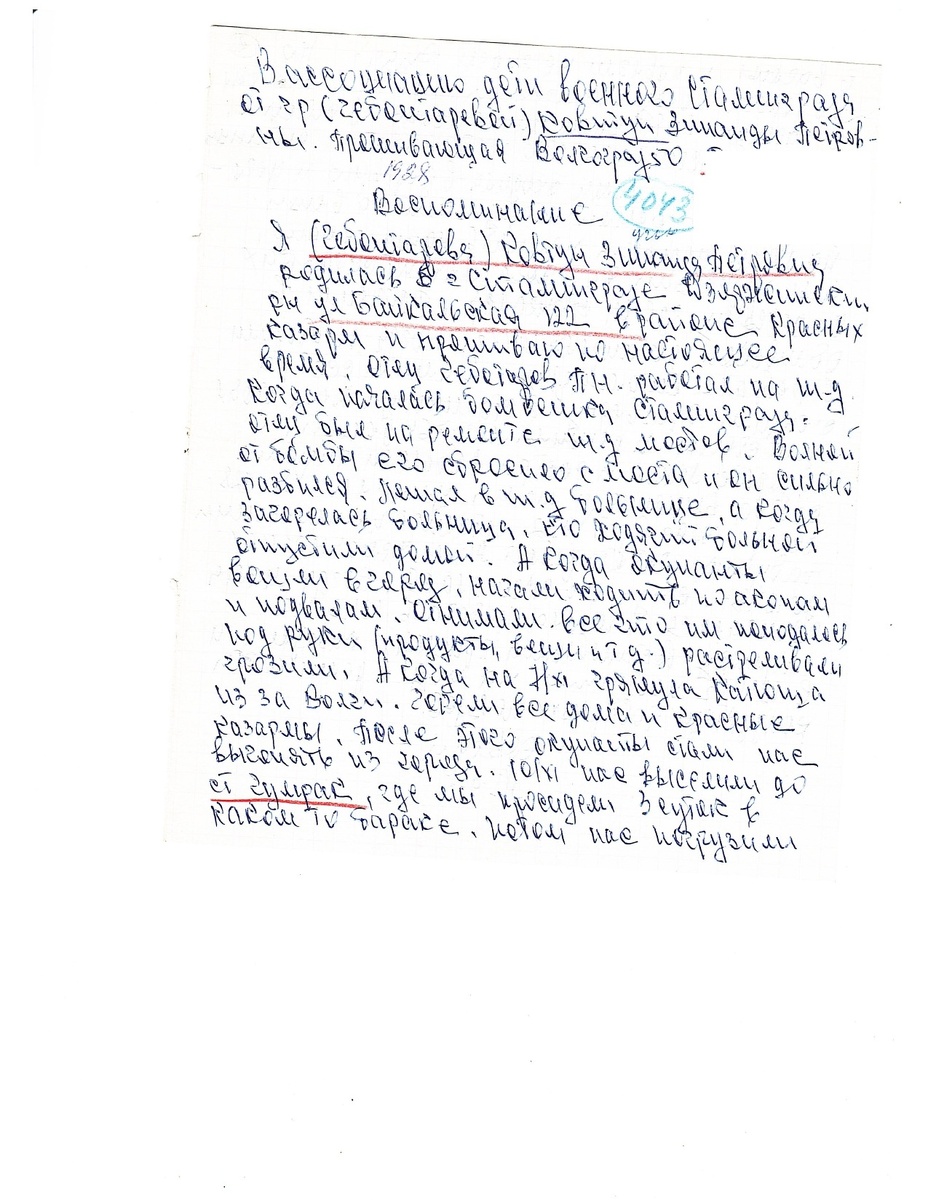 В ассоциацию дети военного Сталинграда
от гр (Чеботаревой) Ковтун Зинаиды Петров-
ны. Проживающая Волгоград 50
1928
Воспоминание
4043
Я (Чеботарева) Ковтун Зинаида Петровна
родилась в г Сталинграде Дзержинский
рн ул Байкальская 122 в районе Красных
казарм и проживаю по настоящее
время. Отец Чеботарев П.Н. работал на ж-д.
Когда началась бомбешка Сталинграда.
отец был на ремонте ж.д мостов. Волной
от бомбы его сбросило с моста и он сильно
разбился. Лежал в ж.д больнице, а когда
загорелась больница, кто ходячий больной
отпустили домой. А когда окупанты
вошли в город, начали ходить по акопам
и подвалам. Отнимали все что им поподалось
под руки (продукты, вещи и т д.) растреливали
грозили. А когда на 7/XI грянула Катюша
из за Волги. Горели все дома и Красные
казармы. После этого окупанты стали нас
выгонять из города. 10/XI нас выселили до
ст Гумрак, где мы просидели 3 суток в
каком то бараке. Потом нас погрузили